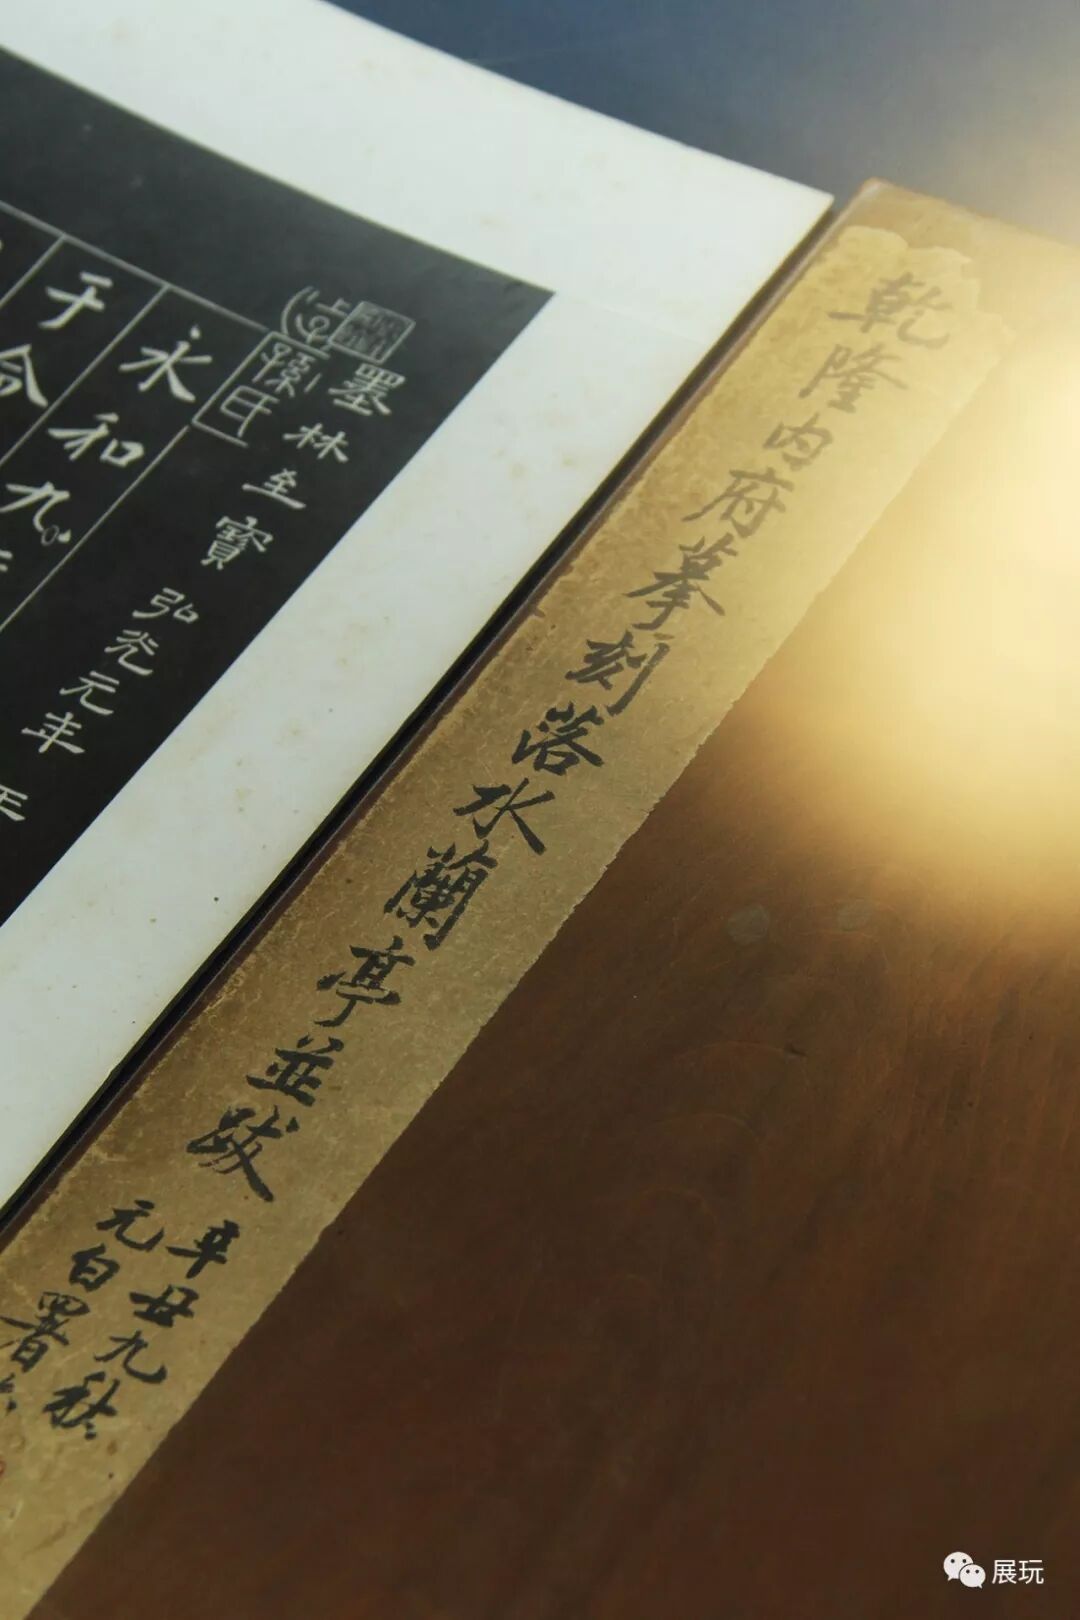 乾隆内府摹刻落水蘭亭並跋
辛丑九秋
元白署
墨林至寳
弘光元年
孫氏
永和九
于
命
展玩